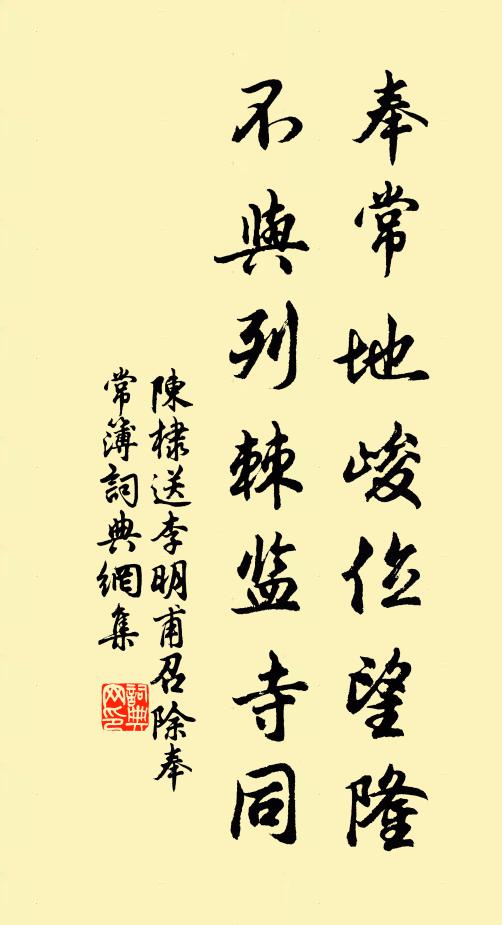 奉常地峻位望隆
不與列棘监寺同
陳棣送李明甫召除奉
常簿詞典網集
詞典网印